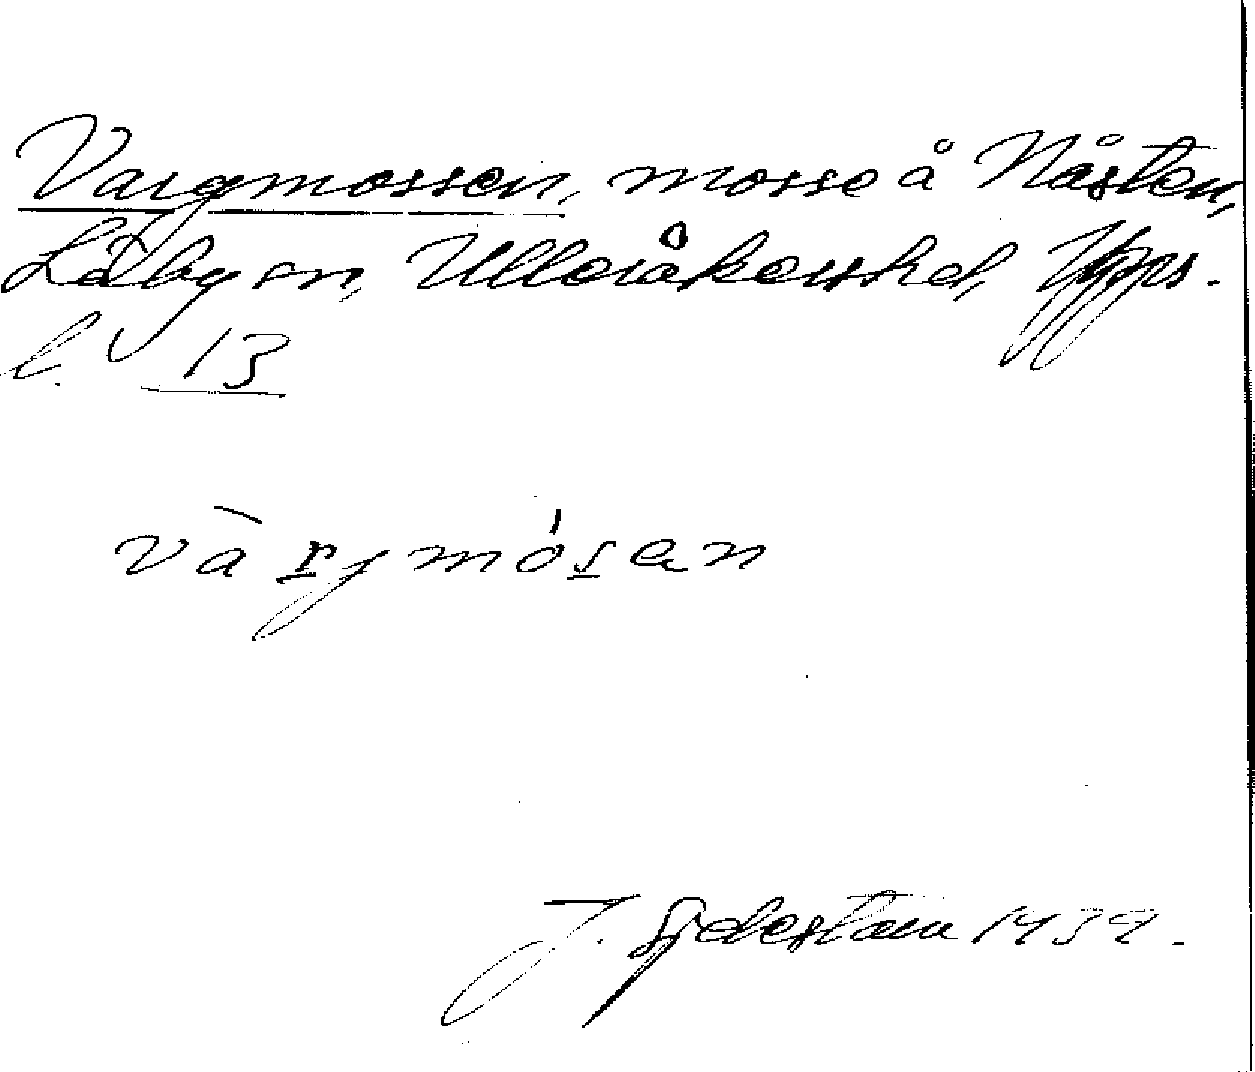 Vargmossen, mosse å Nåsten,
Läby sn, Ulleråkers hd, Upps.
l. 13
và r̲jmós̲an
J. Sjdestam 1939.